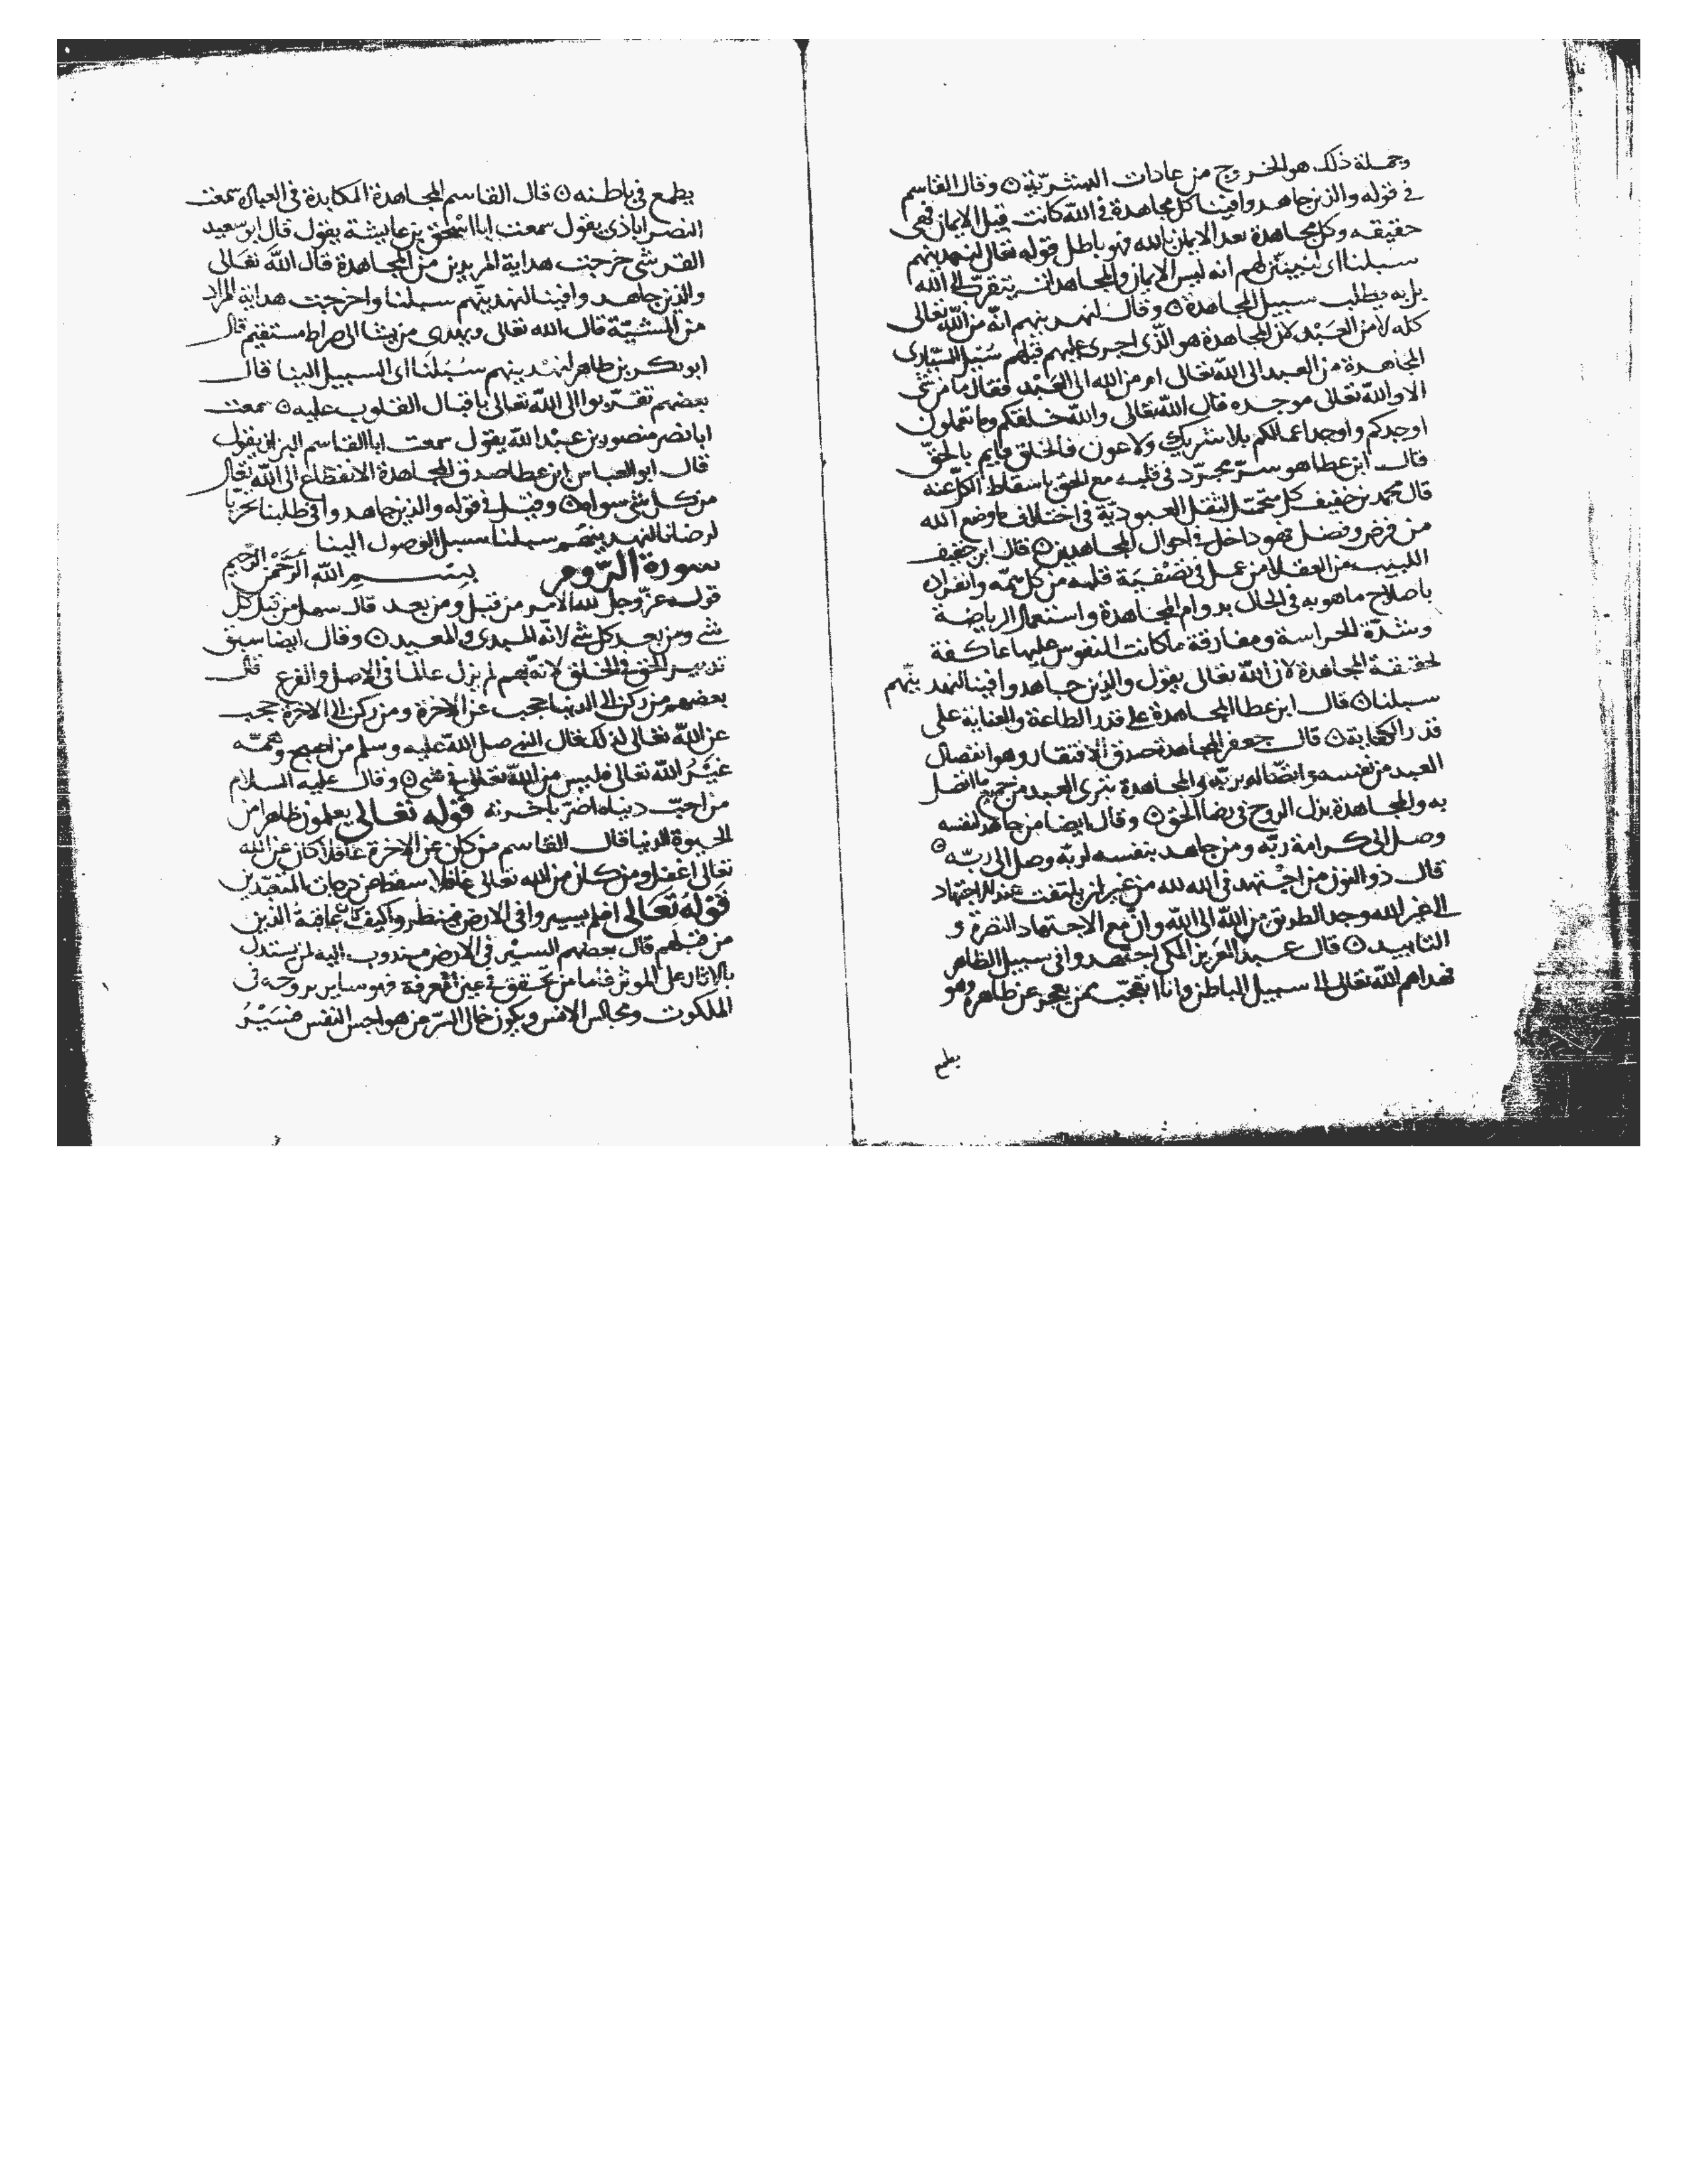 وجملة ذلك هو الخروج من عادات البشرية ۞ وقال القاسم
في قوله والذين جاهدوا فينا كل مجاهدة في الله كانت قبل الايمان فهى
حقيقه وكل مجاهدة بعد الايمان بالله فهو باطل قوله تعالى لنهدينهم
سبلنا اى لنبينن لهم انه ليس الايمان والمجاهدات يتقرب الى الله
بل به يطلب سبيل المجاهدة ۞ وقال لنهدينهم انه من الله تعالى
كله لا من العبد لان المجاهدة هو الذى اجرى عليهم قبلهم سبل السيارى
المجاهدة من العبد الى الله تعالى امر من الله الى العبد فقال ما من شى
الا والله تعالى موجده قال الله تعالى والله خلقكم وما تعملون
اوجدكم واوجد اعمالكم بلا شريك ولا عون فالخلق قايم بالحق
قال ابن عطا هو سر مجرد فى قلبه مع الحق باسقاط الكل عنه
قال محمد بن خفيف كل متحمل لثقل العبودية فى اختلاف ما وضع الله
من فرض وفضل فهو داخل فى احوال المجاهدين ۞ قال ابن خفيف
اللبيب من العقلا من عمل فى تصفية قلبه من كل همه وانفراده
باصلاح ما هو به فى الحال بدوام المجاهدة واستعمال الرياضة
وشدة الحراسة ومفارقة ما كانت النفوس عليها عاكفة
لحقيقة المجاهدة لان الله تعالى يقول والذين جاهدوا فينا لنهدينهم
سبلنا ۞ قال ابن عطا المجاهدة على قدر الطاعة والعناية على
قدر الكفاية ۞ قال جعفر المجاهدة صدق الافتقار وهو انفصال
العبد من نفسه واتصاله بربه والمجاهدة تبرى العبد من جميع ما اتصل
به والمجاهدة بذل الروح فى رضا الحق ۞ وقال ايضا من جاهد لنفسه
وصل الى كرامة ربه ومن جاهد بنفسه لربه وصل الى ربه ۞
قال ذو النون من اجتهد فى الله لله من غير ان يلتفت عند الاجتهاد
الى غير الله وجد الطريق من الله الى الله وان مع الاجتهاد النصرة و
التاييد ۞ قال عبد العزيز المكى اجتهدوا فى سبيل الظاهر
فهداهم الله تعالى الا سبيل الباطن وانا اتعجب ممن يعجز عن ظاهره وهو
يطمع
يطمع فى باطنه ۞ قال القاسم المجاهدة المكابدة فى العبال سمعت
النصراباذى يقول سمعت ابا اسحق بن عايشة يقول قال ابو سعيد
القرشى خرجت هداية المريدين من المجاهدة قال الله تعالى
والذين جاهدوا فينا لنهدينهم سبلنا واخرجت هداية المراد
من المشية قال الله تعالى ويهدى من يشا الى صراط مستقيم قال
ابو بكر بن طاهر لنهدينهم سبلنا اى السبيل الينا قال
بعضهم تقربوا الى الله تعالى باقبال القلوب عليه ۞ سمعت
ابا نصر منصور بن عبد الله يقول سمعت ابا القاسم البزاز يقول
قال ابو العباس ابن عطا صدق المجاهدة الانقطاع الى الله تعالى
من كل شى سواه ۞ وقيل فى قوله والذين جاهدوا فى طلبنا تحريا
لرضانا لنهدينهم سبلنا سبيل الوصول الينا
سورة الروم بسم الله الرحمن الرحيم
قوله عز وجل لله الامر من قبل ومن بعد قال سهل من قبل كل
شى ومن بعد كل شى لانه المبدى والمعيد ۞ وقال ايضا سبق
تدبير الحق فى الخلق لانه بهم لم يزل عالما فى الاصل والفرع قال
بعضهم من ركن الى الدنيا حجب عن الاخرة ومن ركن الى الاخرة حجب
عن الله تعالى لذلك قال النبى صلى الله عليه وسلم من اصبح وهمه
غير الله تعالى فليس من الله تعالى فى شى ۞ وقال عليه السلام
من احب دنياه اضر باخرته قوله تعالى يعلمون ظاهرا من
الحيوة الدنيا قال القاسم من كان عن الاخرة غافلا كان عن الله
تعالى اغفل ومن كان من الله تعالى غافلا سقط من درجات المتعبدين
قوله تعالى افلم يسيروا فى الارض فينظروا كيف كان عاقبة الذين
من قبلهم قال بعضهم السير فى الارض مندوب اليه لمن يستدل
بالاثار على الموثر فاما من تحقق فى عين المعرفة فهو ساير بروحه فى
الملكوت ومجالس الانس ويكون خال السر من هواجس النفس فسير